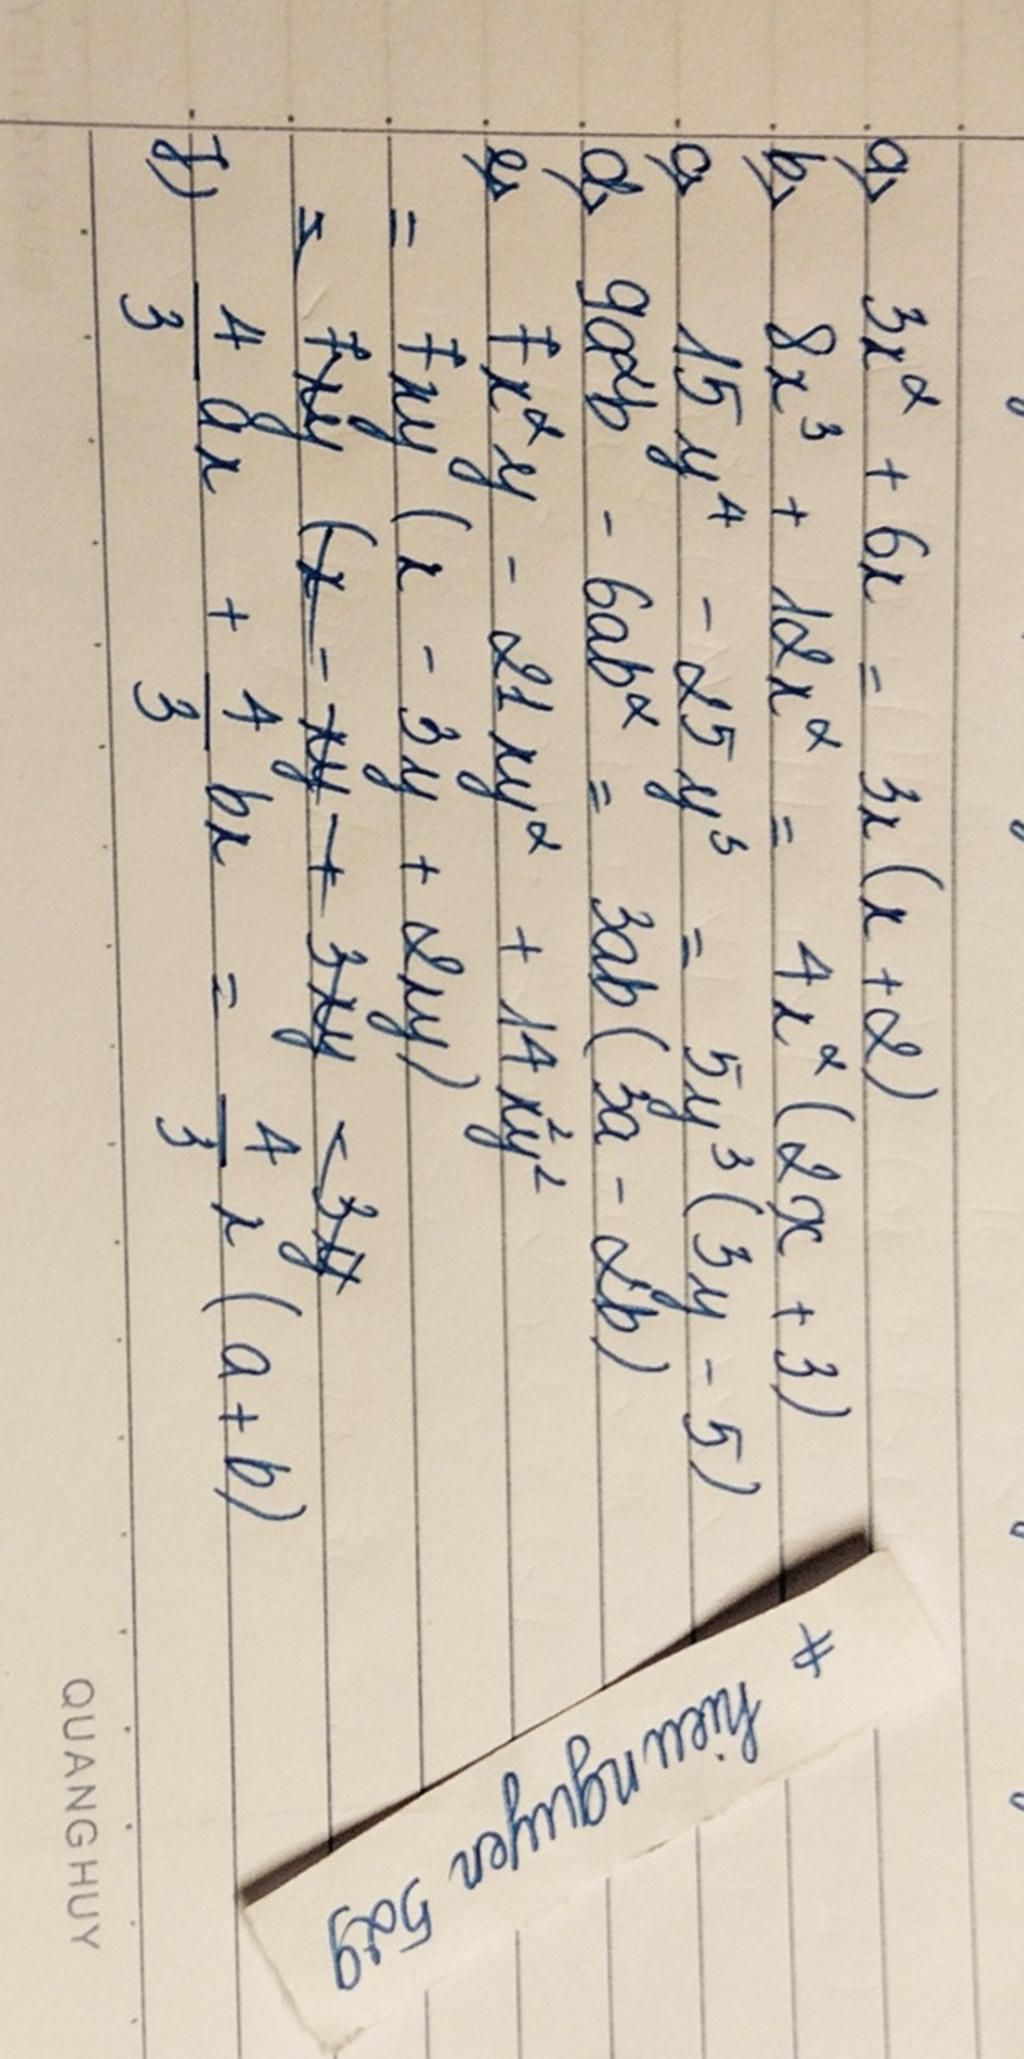 a, 3x² + 6x = 3x(x+2)
b, 8x³ + 12x² = 4x²(2x + 3)
c, 15y⁴ - 25y³ = 5y³(3y - 5)
d, 9a²b - 6ab² = 3ab(3a - 2b)
e, 7x²y - 21xy² + 14x²y²
= 7xy(x - 3y + 2xy)
= 7xy (x - xy + 3xy - 3y
f) 4/3 ax + 4/3 bx = 4/3 x (a+b)
* hieunguyen 529
QUANGHUY